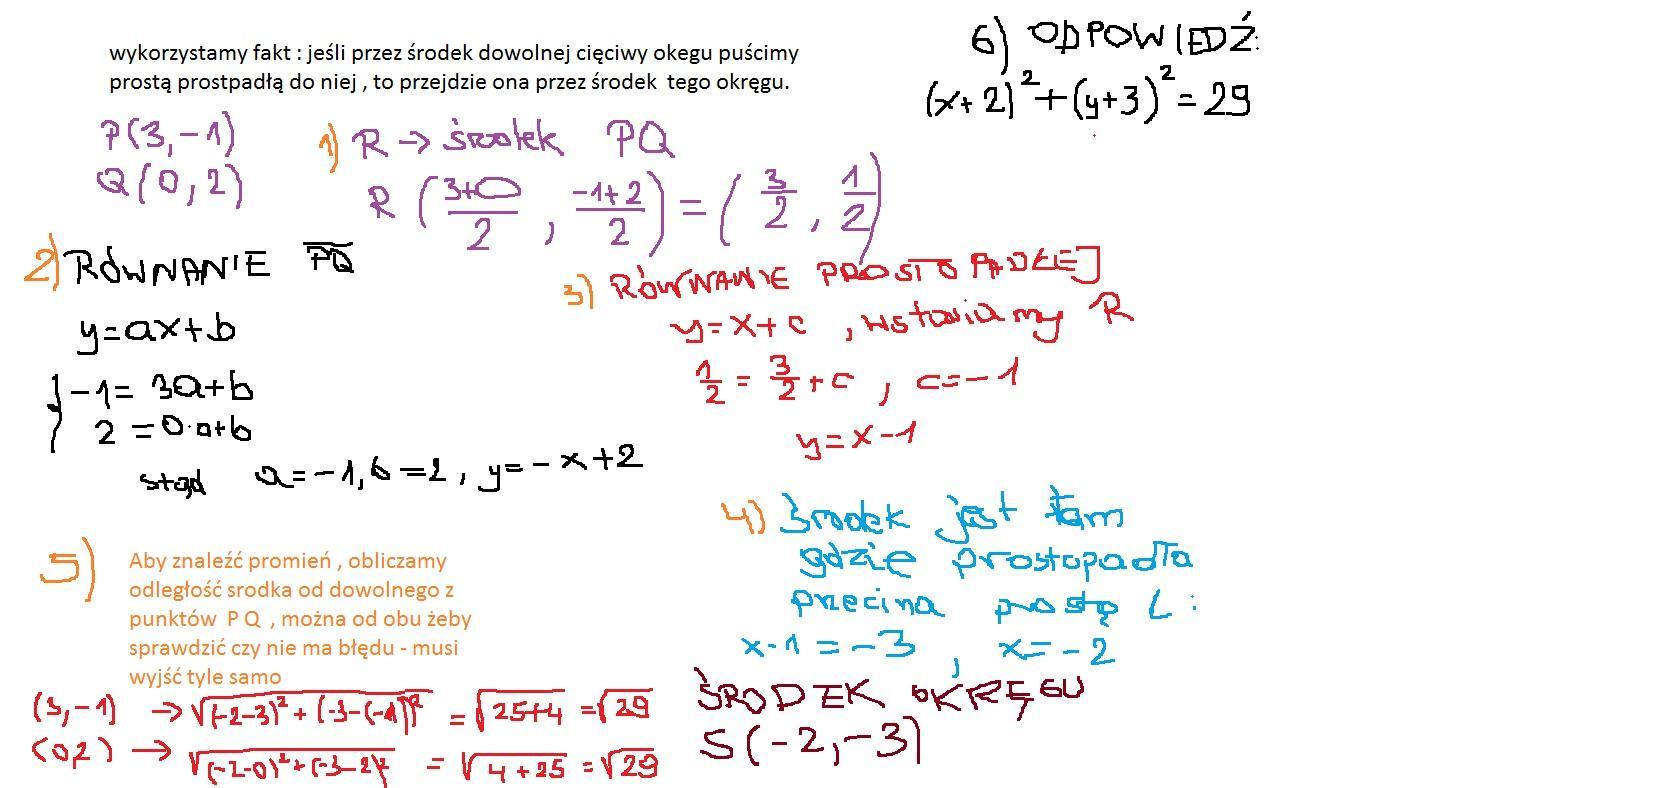 wykorzystamy fakt : jeśli przez środek dowolnej cięciwy okegu puścimy
prostą prostpadłą do niej , to przejdzie ona przez środek tego okręgu.
P(3,-1)
Q(0,2)
1) R → środek PQ
R ((3+0)/2 , (-1+2)/2) = (3/2 , 1/2)
2) RÓWNANIE PQ
y=ax+b
{ -1= 3a+b
2 =0·a+b
stąd a=-1, b=2, y=-x+2
3) RÓWNANIE PROSTOPADŁEJ
y=x+c , wstawiamy R
1/2 = 3/2 + c , c=-1
y=x-1
4) Środek jest tam
gdzie prostopadła
przecina prostą L :
x-1=-3 , x=-2
ŚRODEK OKRĘGU
S(-2,-3)
5) Aby znaleźć promień , obliczamy
odległość srodka od dowolnego z
punktów P Q , można od obu żeby
sprawdzić czy nie ma błędu - musi
wyjść tyle samo
(3,-1) → √((-2-3)²+(-3-(-1))²) = √(25+4) = √29
(0,2) → √((-2-0)²+(-3-2)²) = √(4+25) = √29
6) ODPOWIEDŹ:
(x+2)²+(y+3)²=29